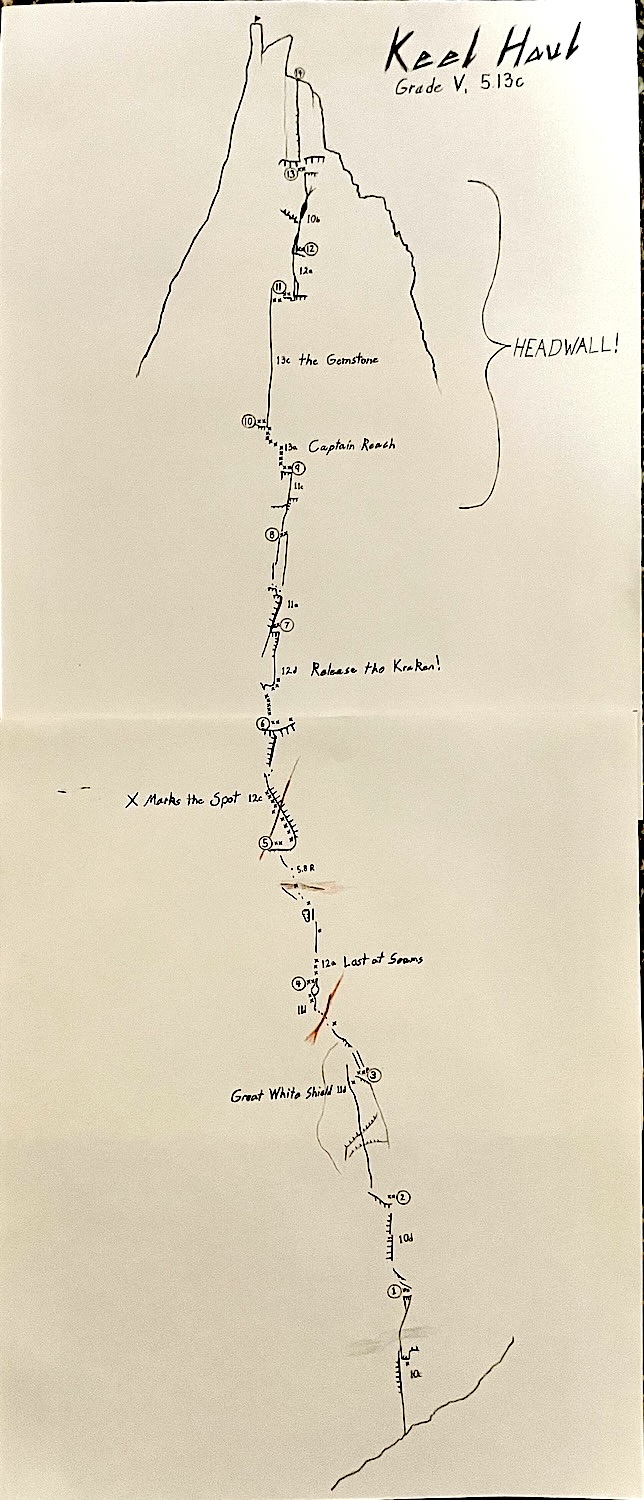 Keel Haul
Grade V, 5.13c
14
13
10b
12
12a
11
13c the Gemstone
HEADWALL!
10
13a Captain Reach
9
11c
8
11a
7
12d Release the Kraken!
6
X Marks the Spot 12c
5
5.8 R
12a Lost at Seams
4
11d
3
Great White Shield 11d
2
10d
1
10c